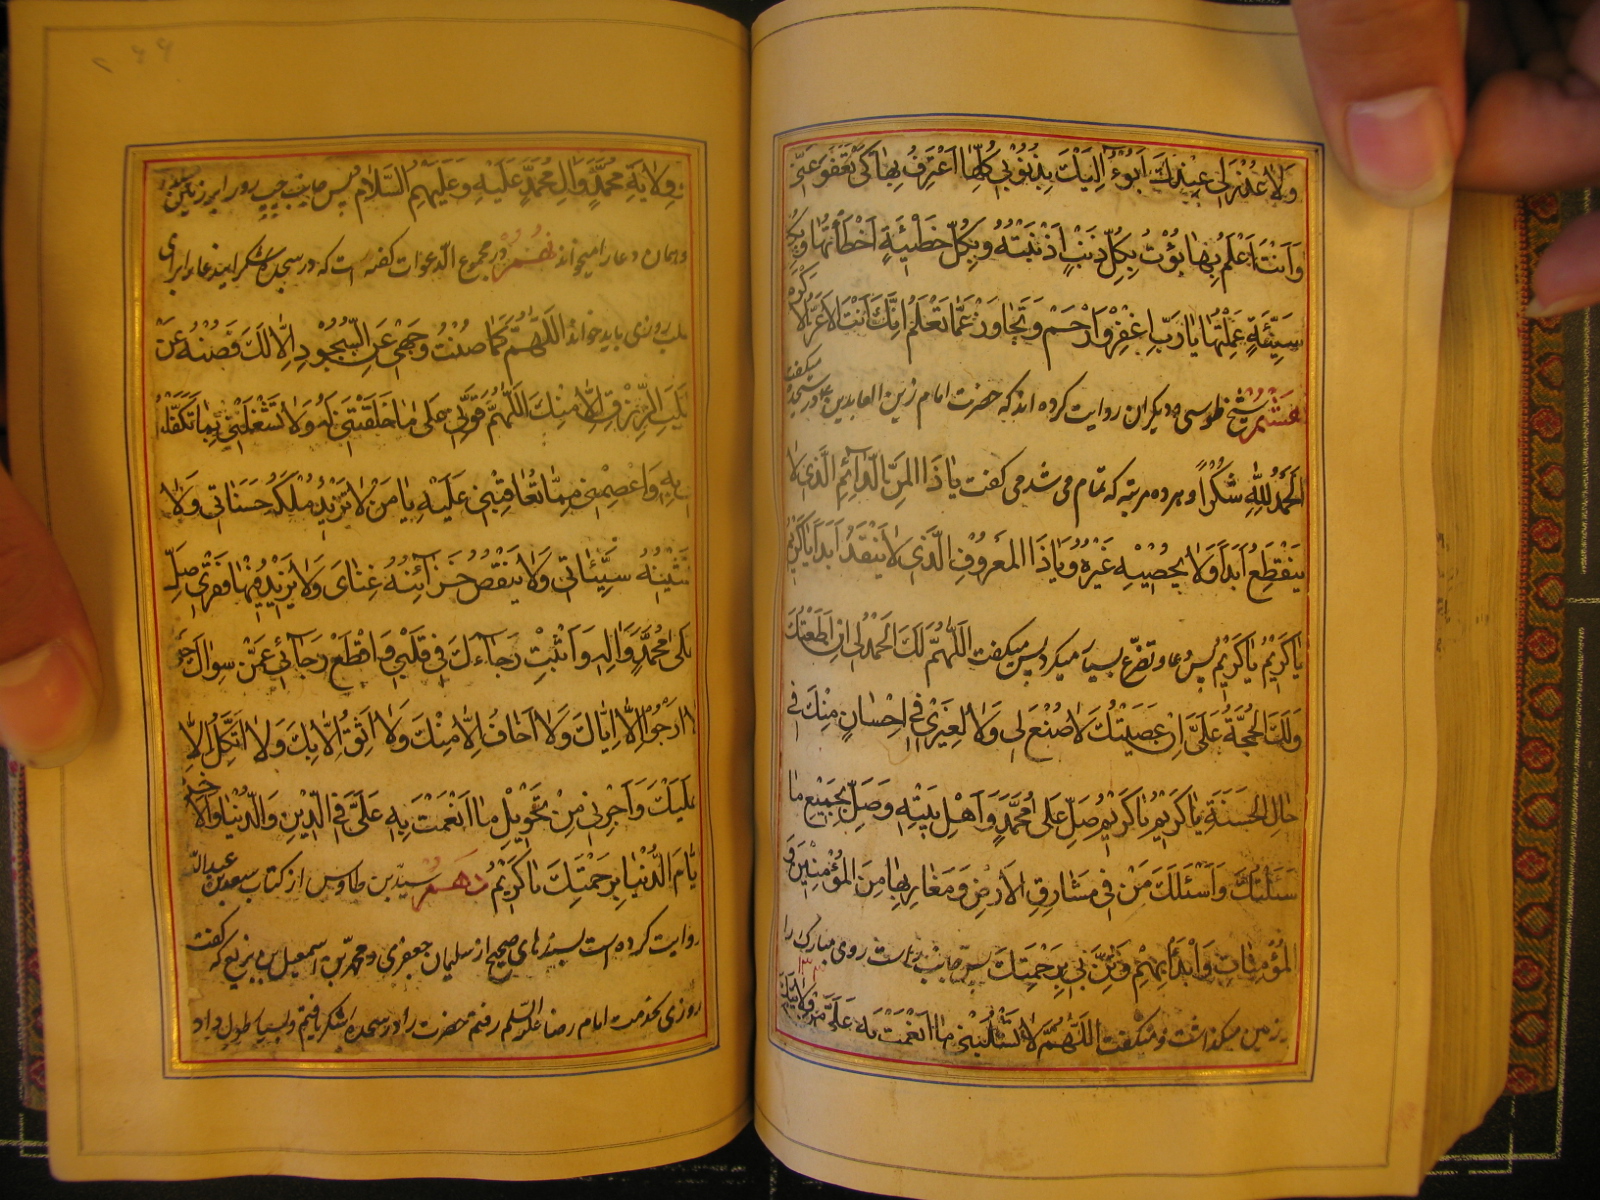 وَلَا عُذْرَ لِی عِنْدَكَ أَبُوءُ اِلَیْكَ بِذُنُوبِی كُلِّهَا اَعْتَرِفُ بِهَا كَیْ تَعْفُوَ عَنّی
وَاَنْتَ اَعْلَمُ بِهَا بُؤْتُ بِكُلِّ ذَنْبٍ اَذْنَبْتُهُ وَبِكُلِّ خَطٓیئَةٍ اَخْطَأْتُهَا وَبِكُلِّ
سَیِّئَةٍ عَمِلْتُهَا یَا رَبِّ اغْفِرْ وَارْحَمْ وَتَجَاوَزْ عَمَّا تَعْلَمُ اِنَّكَ اَنْتَ الْاَعَزُّ الْاَكْرَمُ
هشتم شیخ طوسی و دیگران روایت کرده اند که حضرت امام زین العابدین ع در سجده میگفت
اَلْحَمْدُ لِلّٰهِ شُكْرًا و هر ده مرتبه که تمام می شد می گفت یَا ذَا الْمَنِّ الدَّآئِمِ الَّذِی لَا
یَنْقَطِعُ اَبَدًا وَلَا یُحْصِیهِ غَیْرُهُ وَیَا ذَا الْمَعْرُوفِ الَّذِی لَا یَنْفَدُ اَبَدًا یَا كَرِیمُ
یَا كَرِیمُ یَا كَرِیمُ پس دعا و تضرع بسیار میکرد پس میگفت اَللّٰهُمَّ لَكَ الْحَمْدُ اِنْ اَطَعْتُكَ
وَلَكَ الْحُجَّةُ عَلَیَّ اِنْ عَصَیْتُكَ لَا صُنْعَ لِی وَلَا لِغَیْرِی فِی اِحْسَانٍ مِنْكَ فِی
حَالِ الْحَسَنَةِ یَا كَرِیمُ یَا كَرِیمُ صَلِّ عَلٰی مُحَمَّدٍ وَاَهْلِ بَیْتِهِ وَصِلْ بِجَمِیعِ مَا
سَئَلْتُكَ وَاَسْئَلُكَ مَنْ فِی مَشَارِقِ الْاَرْضِ وَمَغَارِبِهَا مِنَ الْمُؤْمِنِینَ وَ
الْمُؤْمِنَاتِ وَابْدَأْ بِهِمْ وَثَنِّ بِی بِرَحْمَتِكَ پس جانب راست روی مبارک را
بر زمین میگذاشت و میگفت اَللّٰهُمَّ لَا تَسْلُبْنِی مَا اَنْعَمْتَ بِهِ عَلَیَّ مِنْ وَلَایَتِكَ
وِلَایَةِ مُحَمَّدٍ وَاٰلِ مُحَمَّدٍ عَلَیْهِ وَعَلَیْهِمُ السَّلَامُ پس جانب چپ رو را بر زمین
و همان دعا را میخواند نهم در مجموع الدعوات گفته است که در سجده شکر این دعا را برای
طلب روزی باید خواند اَللّٰهُمَّ كَمَا صُنْتَ وَجْهِی عَنِ السُّجُودِ اِلَّا لَكَ فَصُنْهُ عَنْ
طَلَبِ الرِّزْقِ اِلَّا مِنْكَ اَللّٰهُمَّ قَوِّنِی عَلٰی مَا خَلَقْتَنِی لَهُ وَلَا تَشْغَلْنِی بِمَا تَكَفَّلْتَ لِی
بِهِ وَاعْصِمْنِی مِمَّا تُعَاقِبُنِی عَلَیْهِ یَا مَنْ لَا تَزِیدُ مُلْكَهُ حَسَنَاتِی وَلَا
تَشِینُهُ سَیِّئَاتِی وَلَا یَنْقُصُ خَزَآئِنَهُ غِنَایَ وَلَا یَزِیدُ فِیهَا فَقْرِی صَلِّ
عَلٰی مُحَمَّدٍ وَاٰلِهِ وَاَثْبِتْ رَجَاءَكَ فِی قَلْبِی وَاقْطَعْ رَجَائِی عَمَّنْ سِوَاكَ حَتّٰی
لَا اَرْجُوَ اِلَّا اِیَّاكَ وَلَا اَخَافَ اِلَّا مِنْكَ وَلَا اَثِقَ اِلَّا بِكَ وَلَا اَتَّكِلَ اِلَّا
عَلَیْكَ وَاَجِرْنِی مِنْ تَحْوِیلِ مَا اَنْعَمْتَ بِهِ عَلَیَّ فِی الدِّینِ وَالدُّنْیَا وَالْاٰخِرَةِ
اَیَّامَ الدُّنْیَا بِرَحْمَتِكَ یَا كَرِیمُ دهم سید بن طاوس از کتاب سعد بن عبدالله
روایت کرده است بسندهای صحیح از سلیمان جعفری و محمد بن اسمعیل بن بزیع که گفت
روزی بخدمت امام رضا علیه السلام رفتم حضرت را در سجده شکر یافتم و بسیار طول داد